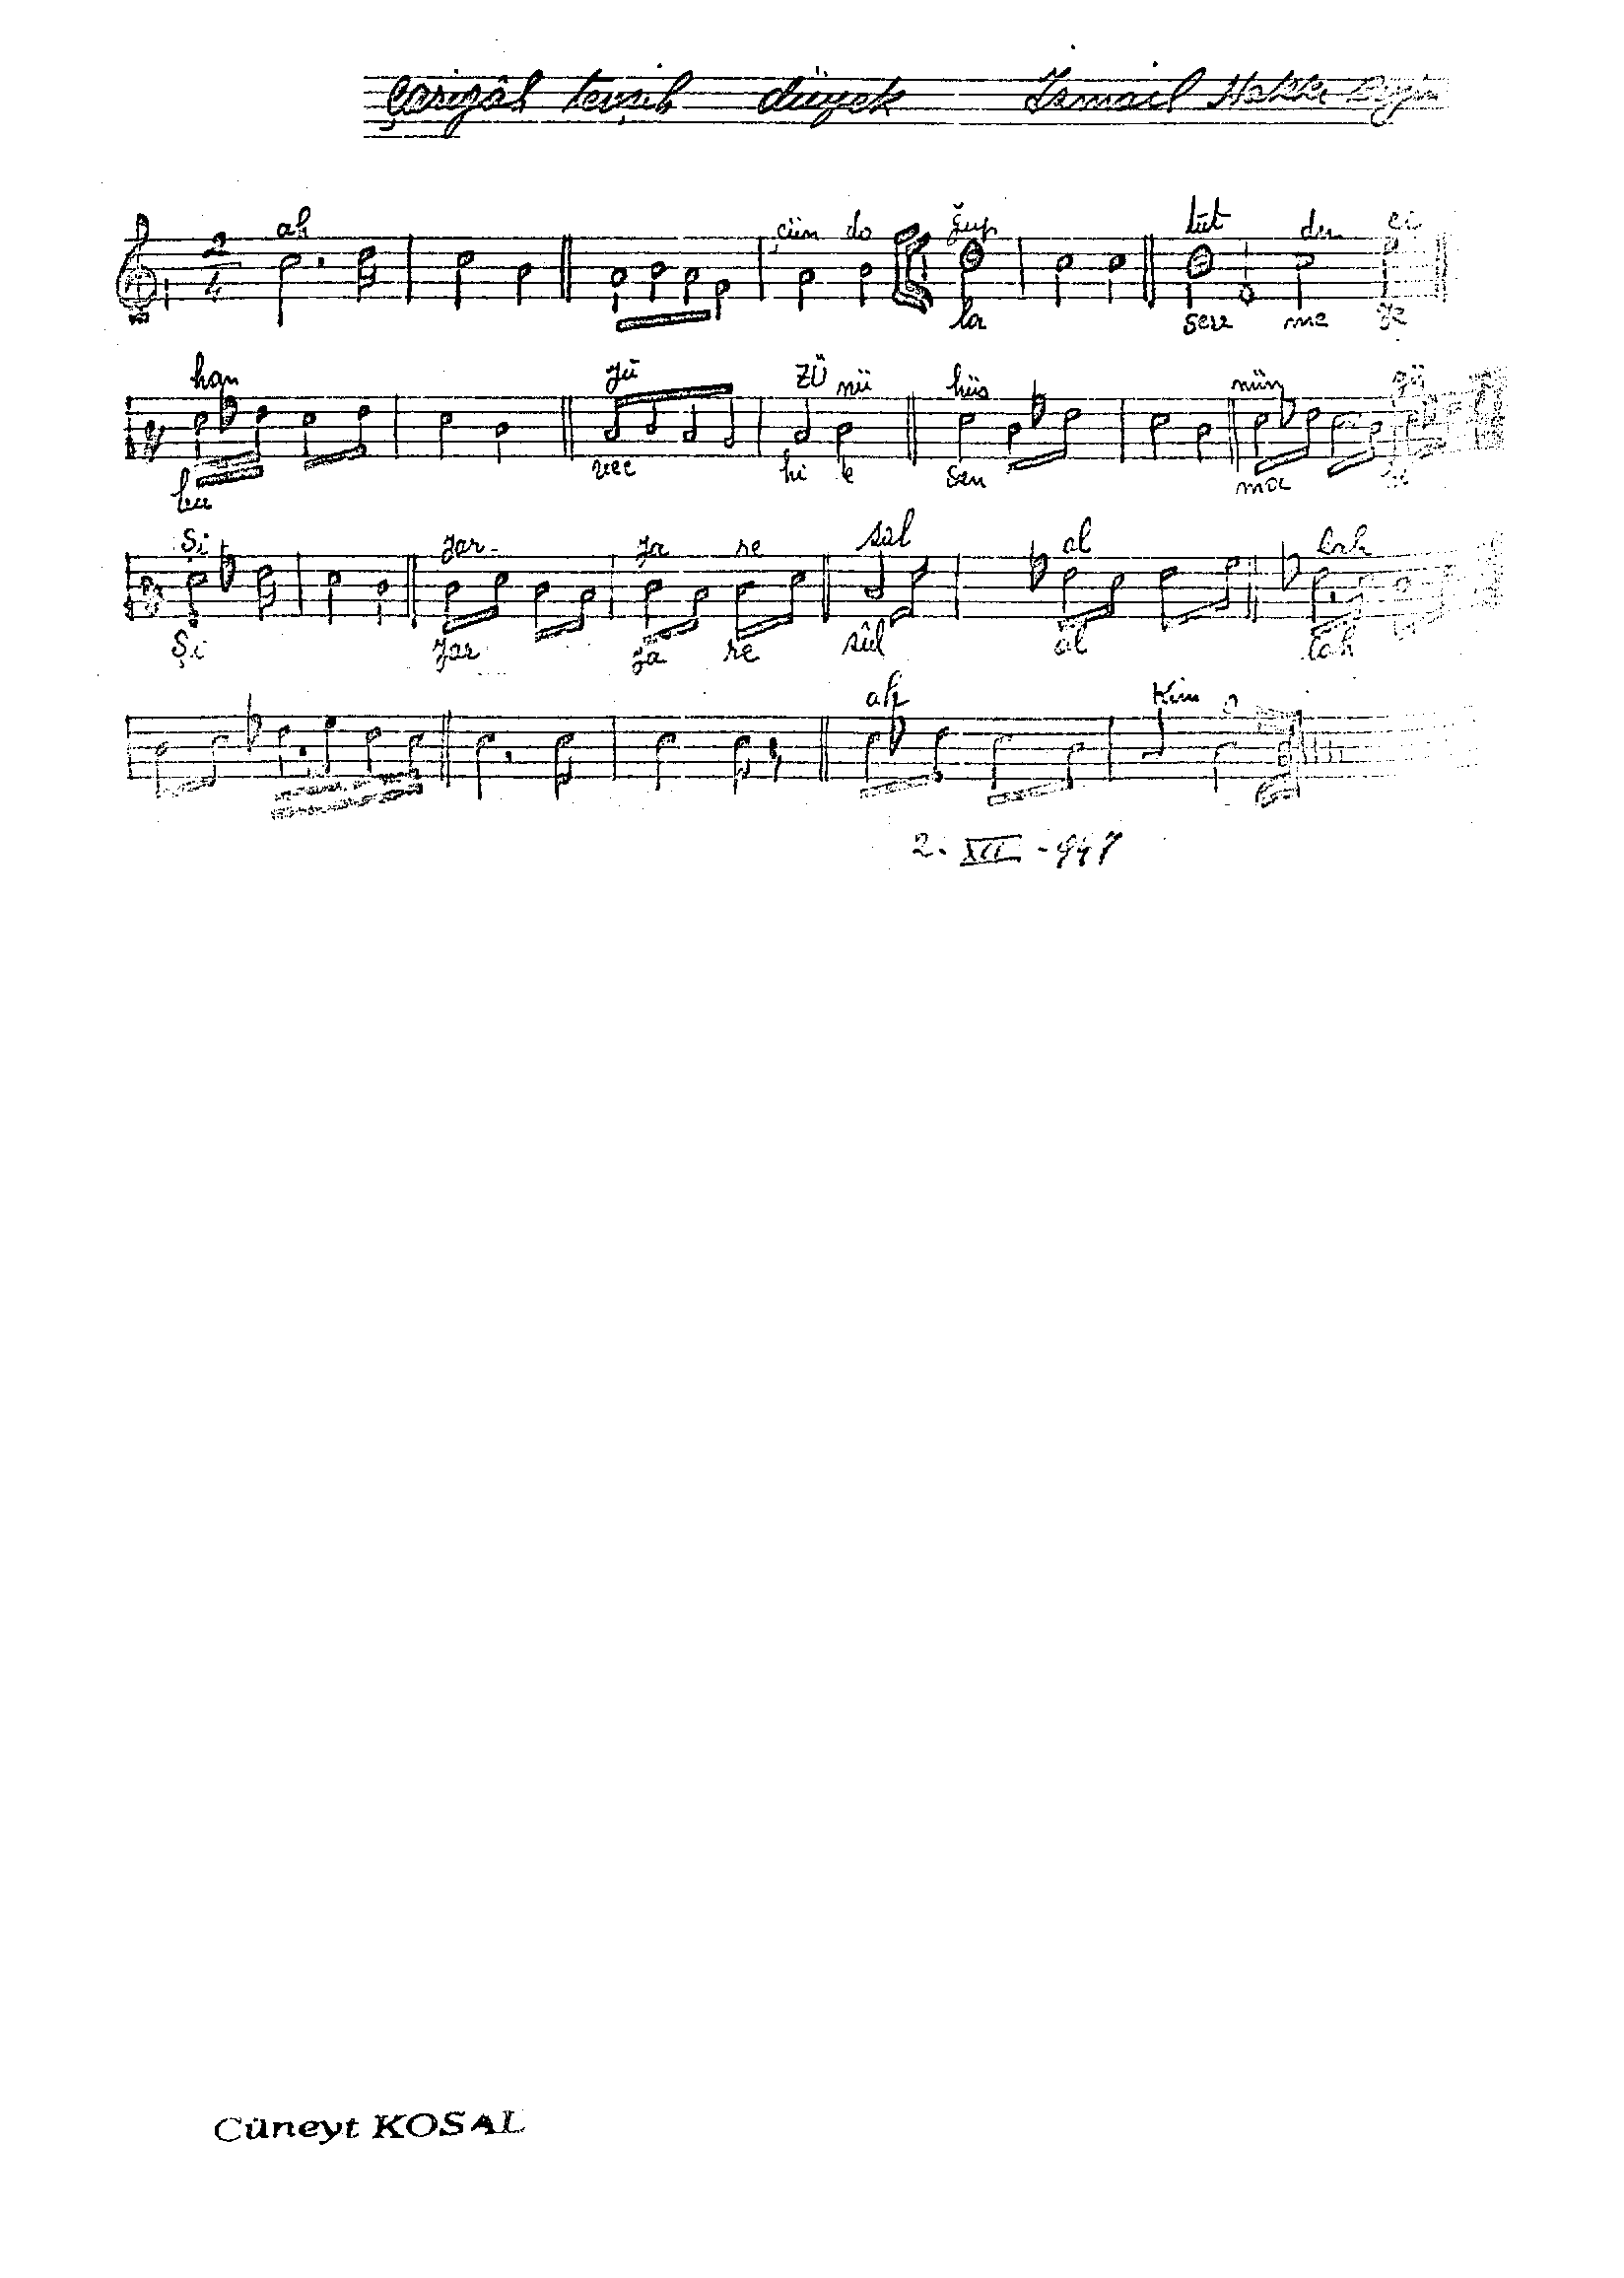 Çargâh tevşih düyek İsmail Hakkı
2
4
ah çün do ğup tût den ci
la sen me ye
han yü zü nü hüs nün
ba vec hi k sen ma
Şi yar- ya re sûl al lah
Şi yar ya re sûl al lah
ah Kim
2. XII - 947
Cüneyt KOSAL